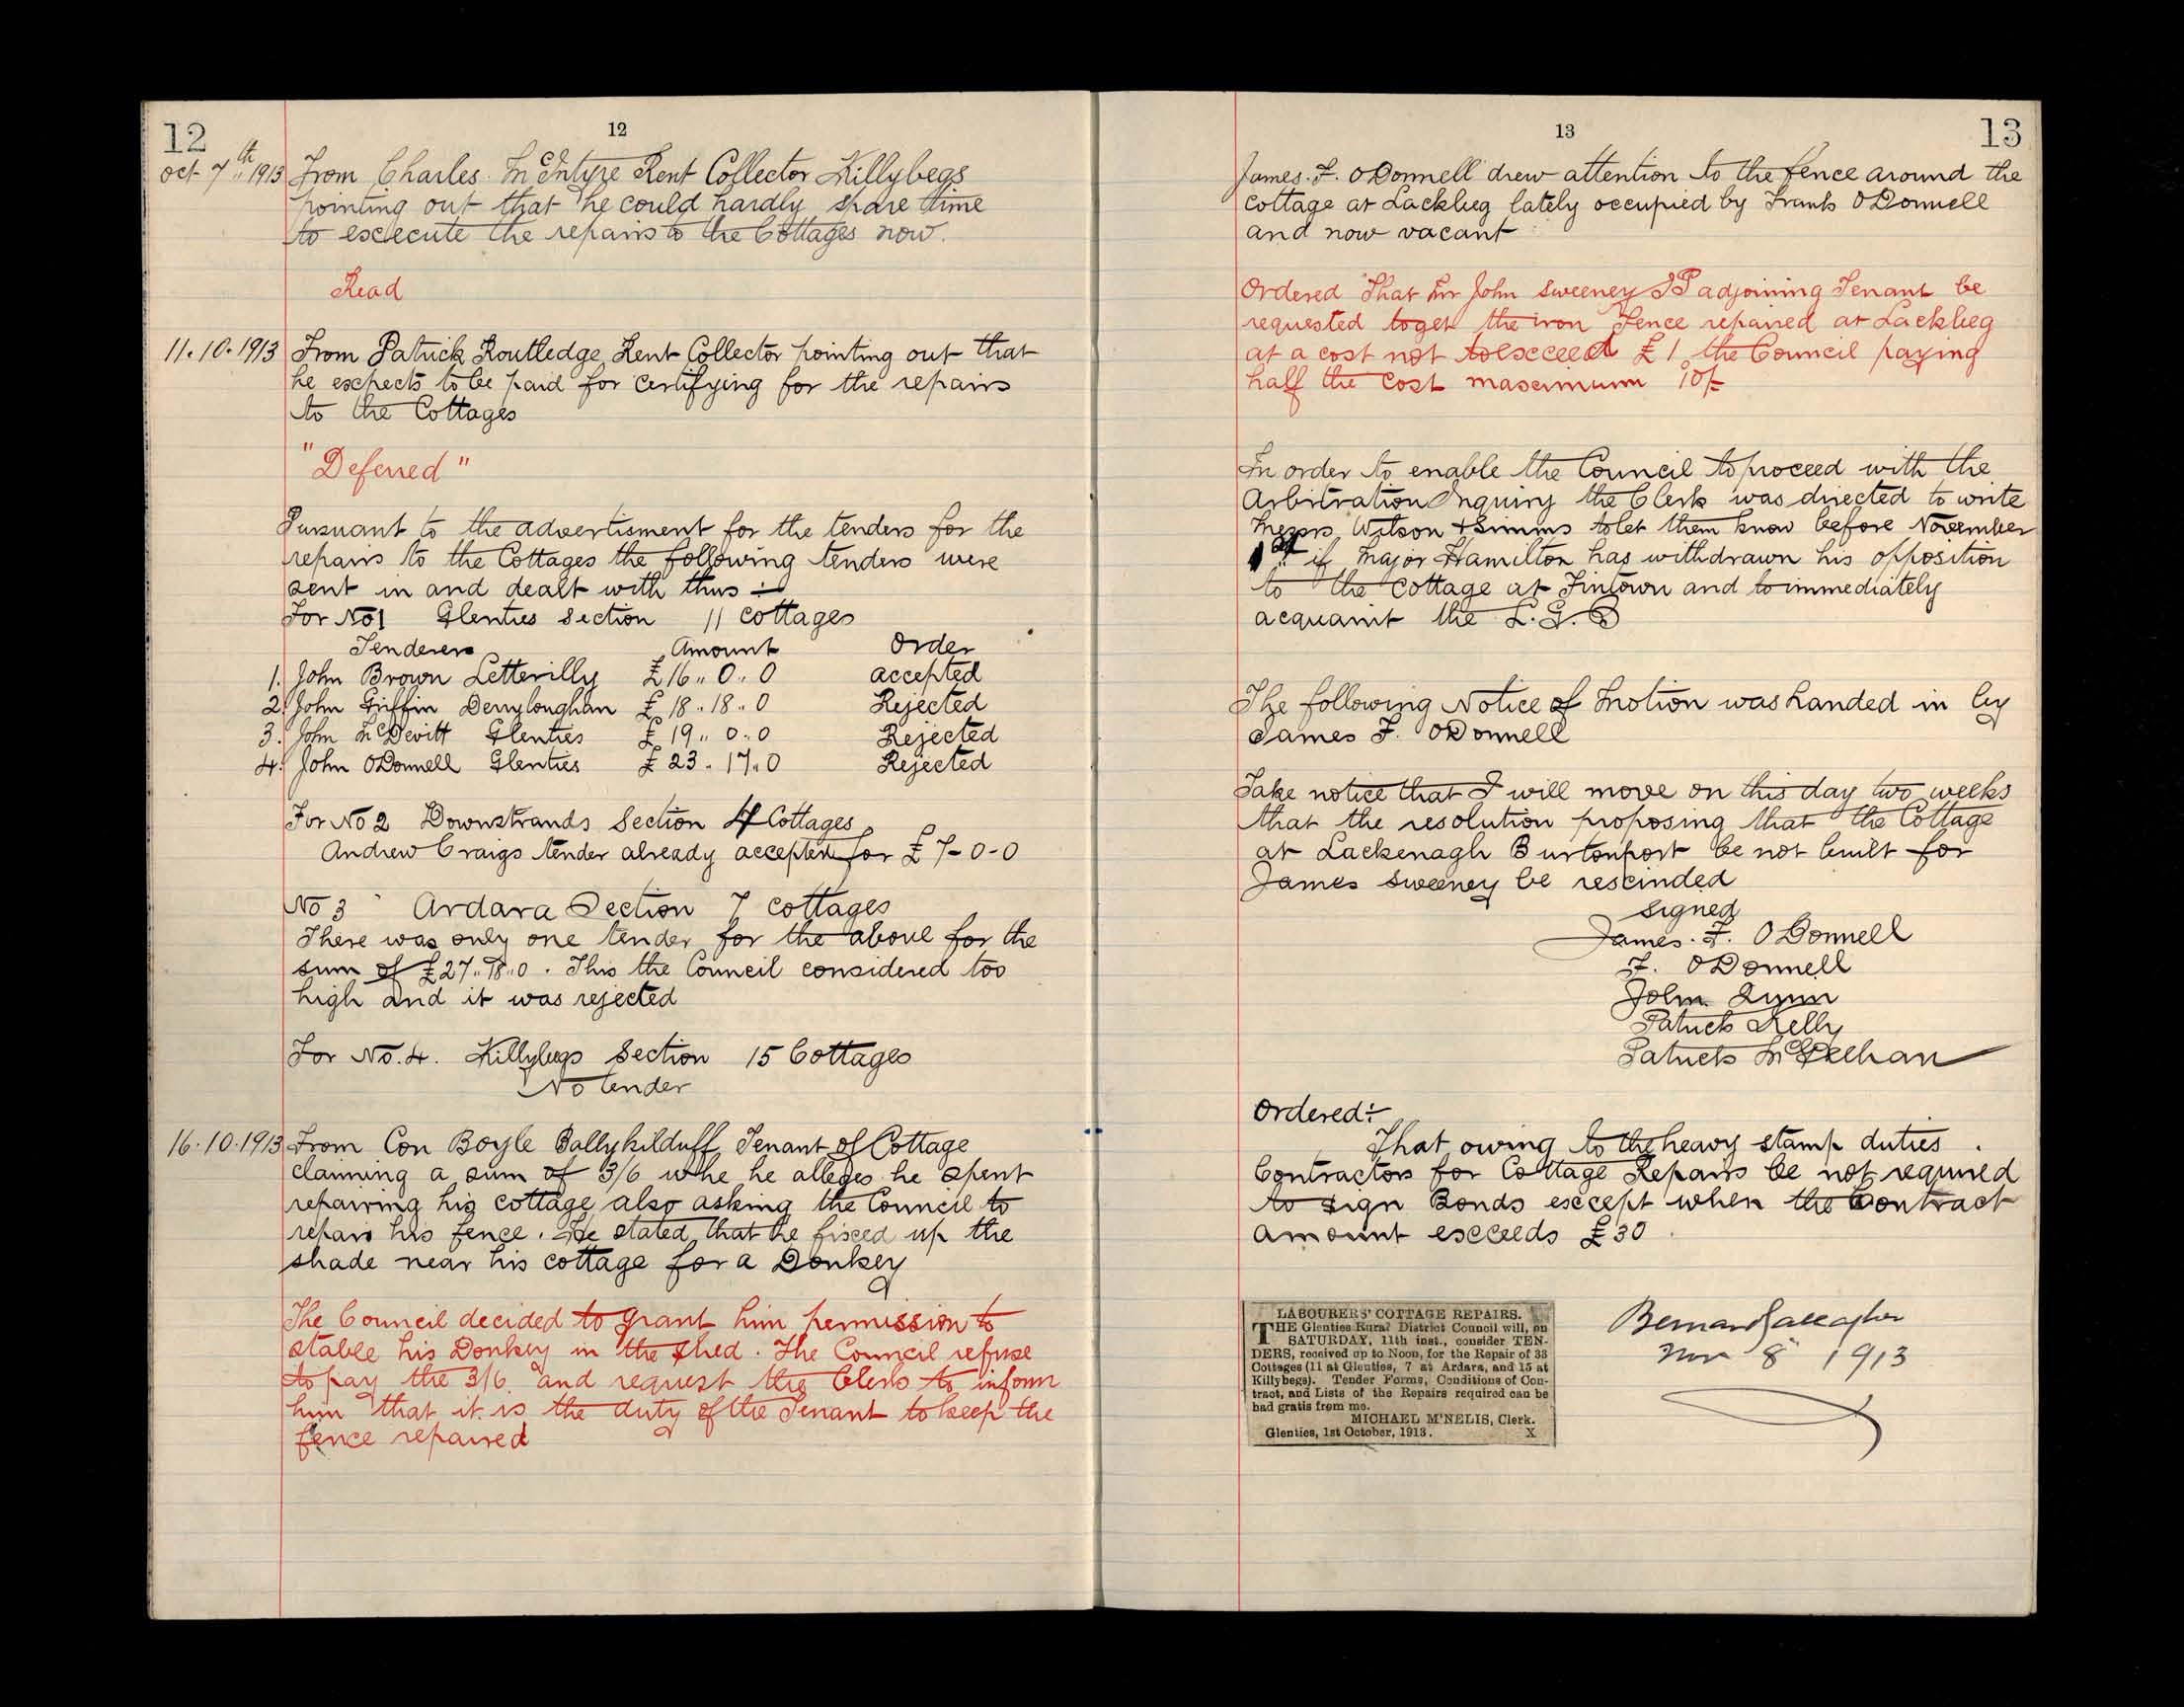 12
12
oct 7th 1913 From Charles McEntyre Rent Collector Killybegs
pointing out that he could hardly spare time
to excecute the repairs to the Cottages now.
Read
11.10.1913 From Patrick Routledge Rent Collector pointing out that
he expects to be paid for certifying for the repairs
to the Cottages
"Deferred"
Pursuant to the advertisment for the tenders for the
repairs to the Cottages the following tenders were
sent in and dealt with thus :-
For No 1 Glenties Section 11 cottages
Tenderers Amount Order
1. John Brown Letterilly £16.. 0.. 0 accepted
2. John Griffin Derryloughan £18..18..0 Rejected
3. John McDevitt Glenties £19.. 0..0 Rejected
4. John ODonnell Glenties £23..17..0 Rejected
For No 2 Downstrands Section 4 Cottages
Andrew Craigs tender already accepted for £7-0-0
No 3 Ardara Section 7 cottages
There was only one tender for the above for the
sum of £27..18..0. This the Council considered too
high and it was rejected
For No. 4. Killybegs Section 15 Cottages
No tender
16.10.1913 From Con Boyle Ballykilduff Tenant of Cottage
claiming a sum of 3/6 whe he alleges he spent
repairing his cottage also asking the Council to
repair his fence. He stated that he fixed up the
shade near his cottage for a Donkey
The Council decided to grant him permission to
stable his Donkey in the shed. The Council refuse
to pay the 3/6 and request the Clerk to inform
him that it is the duty of the Tenant to keep the
fence repaired
13
13
James. F. ODonnell drew attention to the fence around the
cottage at Lackbeg lately occupied by Frank ODonnell
and now vacant
Ordered That Mr John Sweeney JP adjoining Tenant be
requested to get the iron Fence repaired at Lackbeg
at a cost not to exceed £1 the Council paying
half the cost maximum 10/-
In order to enable the Council to proceed with the
Arbitration Inquiry the Clerk was directed to write
Messrs Wilson & Simms to let them know before November
1st if Major Hamilton has withdrawn his opposition
to the cottage at Fintown and to immediately
acquaint the L.G.B
The following Notice of Motion was handed in by
James F. ODonnell
Take notice that I will move on this day two weeks
that the resolution proposing that the Cottage
at Lackenagh Burtonport be not built for
James Sweeney be rescinded
signed
James. F. ODonnell
F. ODonnell
John Quinn
Patrick Kelly
Patrick McGeehan
Ordered:-
That owing to the heavy stamp duties.
Contractors for Cottage Repairs be not required
to sign Bonds except when the Contract
amount exceeds £30
LABOURERS' COTTAGE REPAIRS.
THE Glenties Rural District Council will, on
SATURDAY, 11th inst., consider TEN-
DERS, received up to Noon, for the Repair of 33
Cottages (11 at Glenties, 7 at Ardara, and 15 at
Killybegs). Tender Forms, Conditions of Con-
tract, and Lists of the Repairs required can be
had gratis from me.
MICHAEL M'NELIS, Clerk.
Glenties, 1st October, 1913. X
Bernard Gallagher
Nov 8 1913